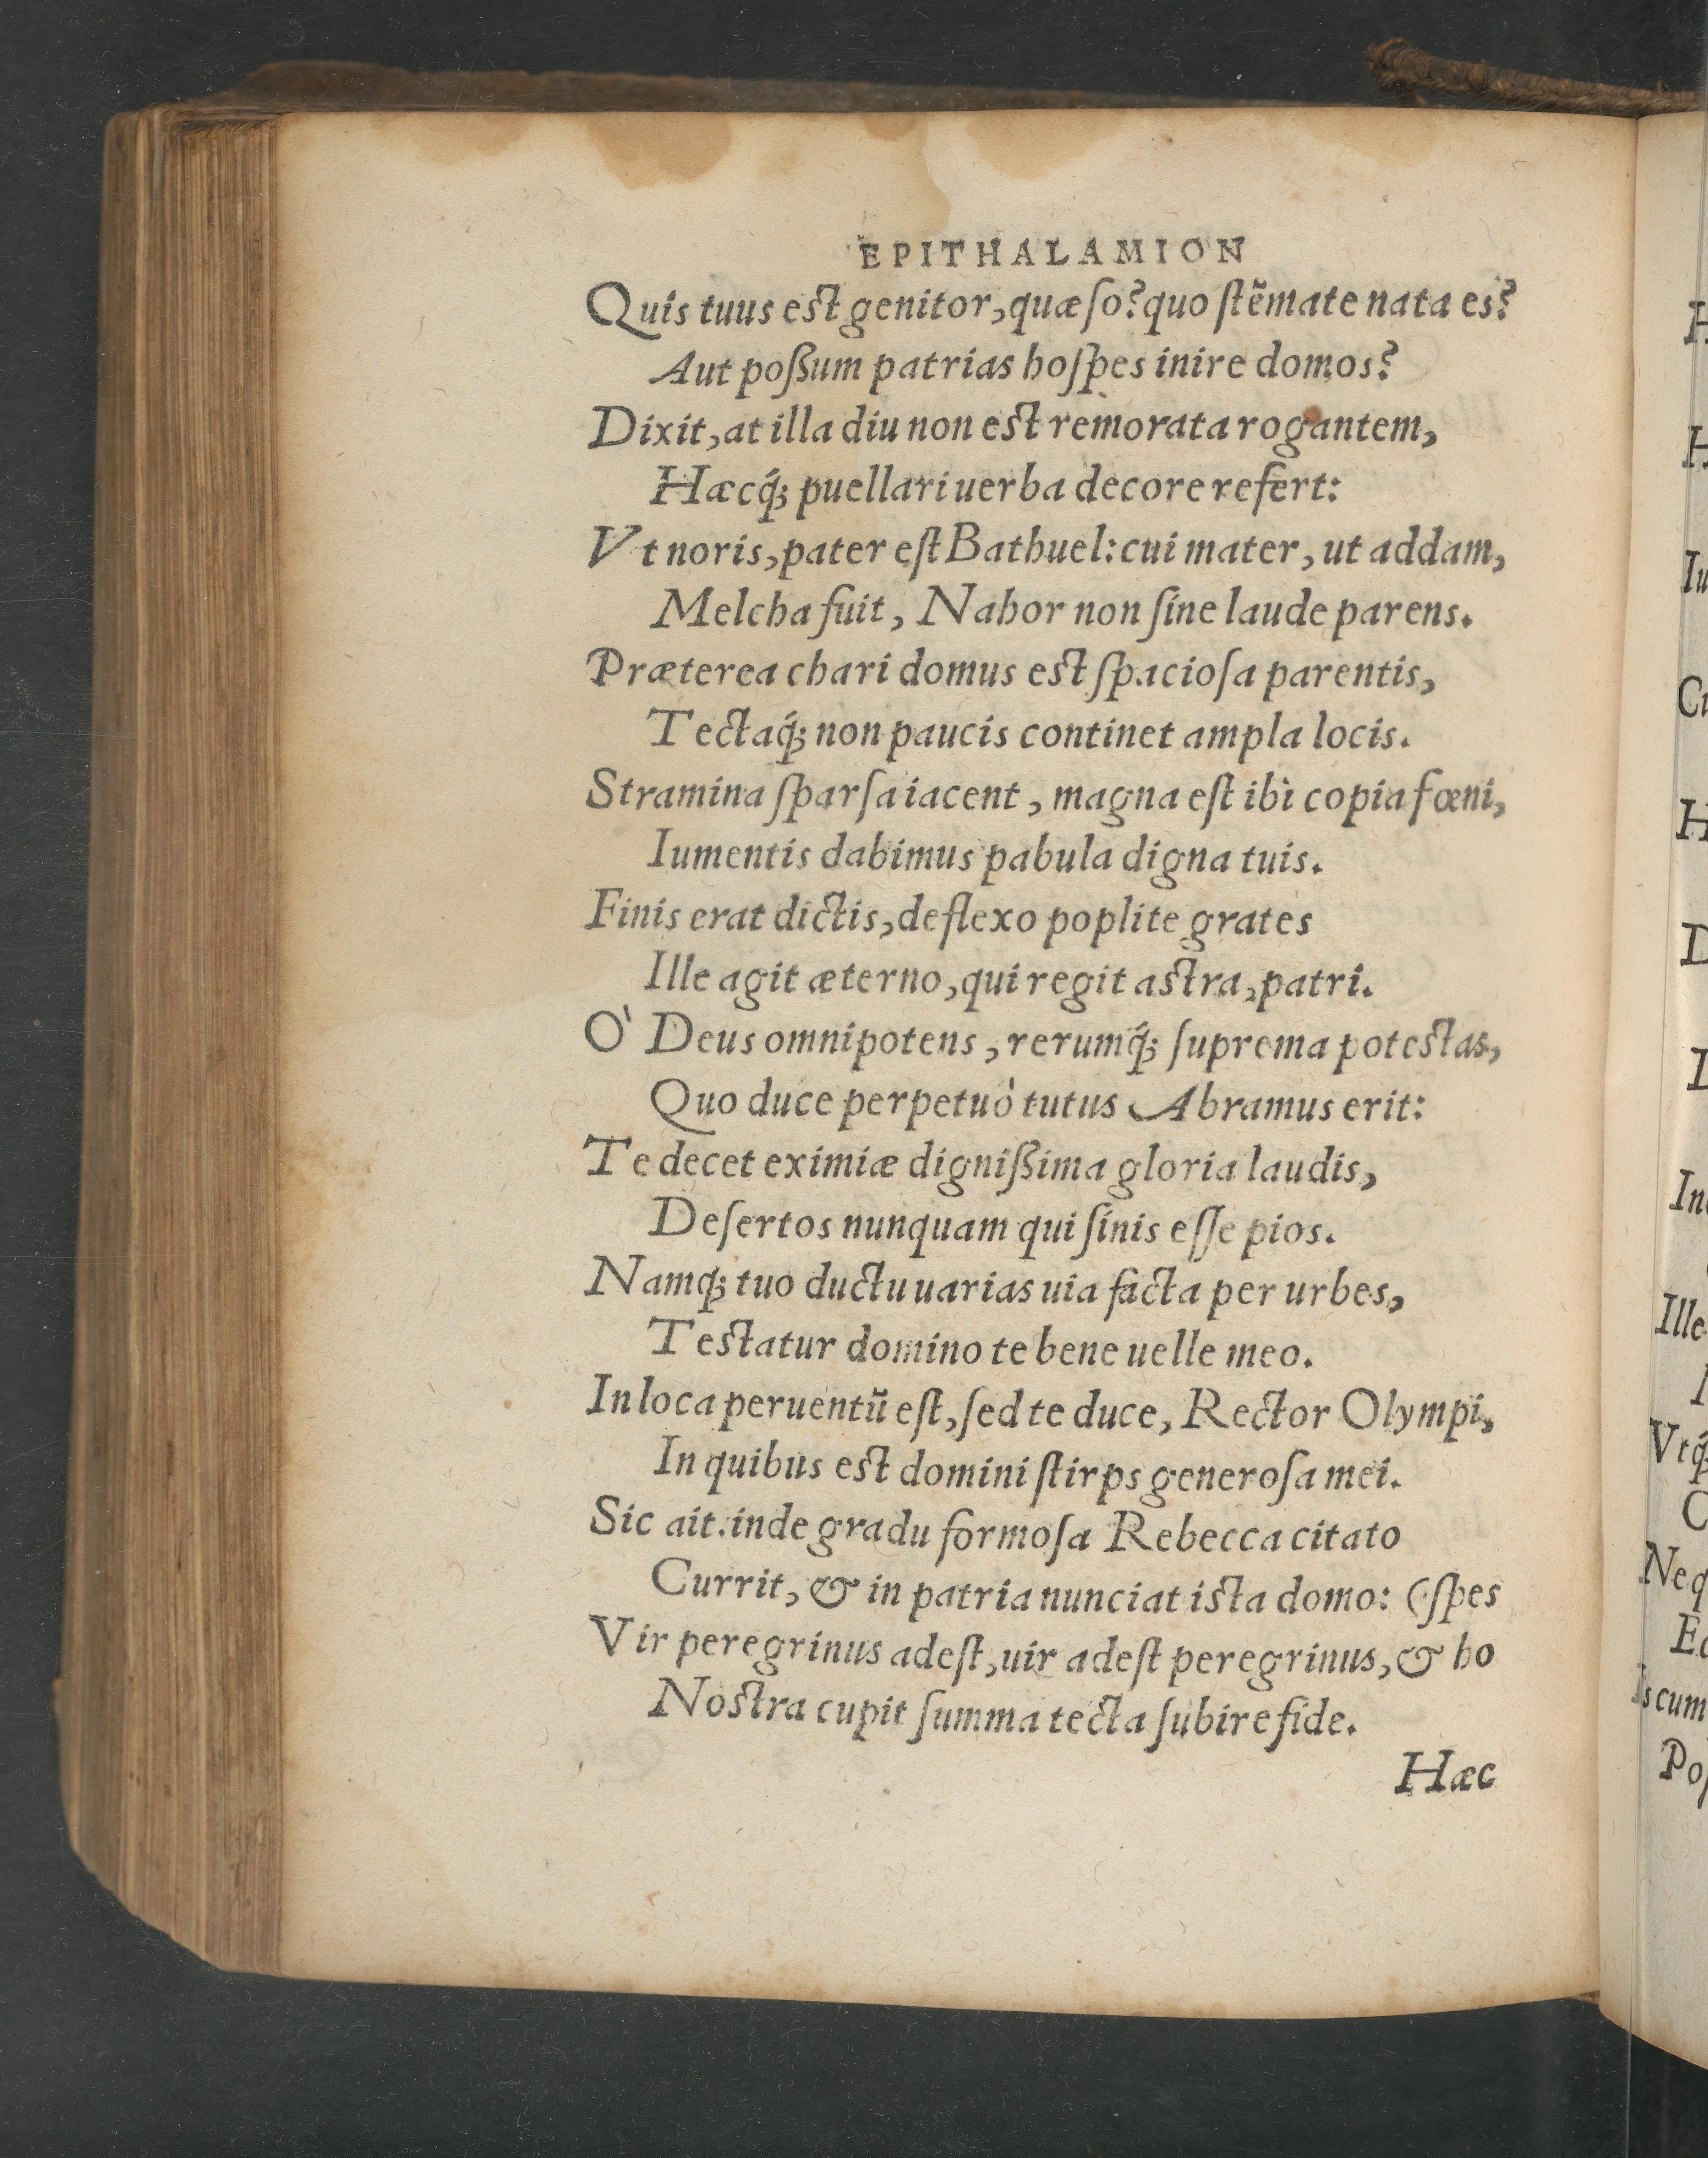 EPITHALAMION
Quis tuus est genitor, quæſo? quo ſtẽmate nata es?
Aut poßum patrias hoſpes inire domos?
Dixit, at illa diu non est remorata rogantem,
Hæcq́; puellari uerba decore refert:
Vt noris, pater eſt Bathuel: cui mater, ut addam,
Melcha fuit, Nahor non ſine laude parens.
Præterea chari domus est ſpacioſa parentis,
Tectaq́; non paucis continet ampla locis.
Stramina ſparſa iacent, magna eſt ibì copia fœni,
Iumentis dabimus pabula digna tuis.
Finis erat dictis, deflexo poplite grates
Ille agit æterno, qui regit astra, patri.
O' Deus omnipotens, rerumq́; ſuprema potestas,
Quo duce perpetuò tutus Abramus erit:
Te decet eximiæ dignißima gloria laudis,
Deſertos nunquam qui ſinis eſſe pios.
Namq; tuo ductu uarias uia facta per urbes,
Testatur domino te bene uelle meo.
In loca peruentũ eſt, ſed te duce, Rector Olympi,
In quibus est domini ſtirps generoſa mei.
Sic ait. inde gradu formoſa Rebecca citato
Currit, & in patria nunciat ista domo: (ſpes
Vir peregrinus adeſt, uir adeſt peregrinus, & ho
Nostra cupit ſumma tecta ſubire fide.
Hæc
Ille
Vtq́;
Is cum